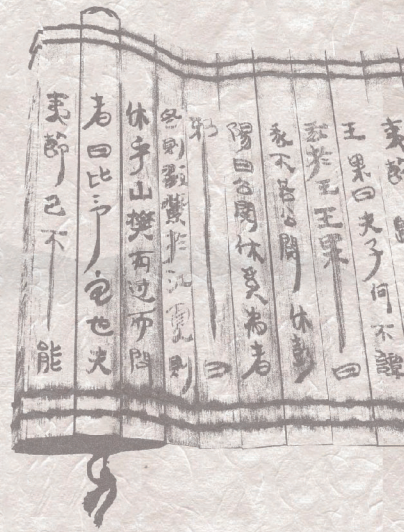 夷節
王果曰夫子何不譚
我於王王果曰
我不若公閱休彭
陽曰公閱休奚為者
邪曰
冬則擉鱉於江夏則
休乎山樊有过而問
者曰此予宅也夫
夷節已不能